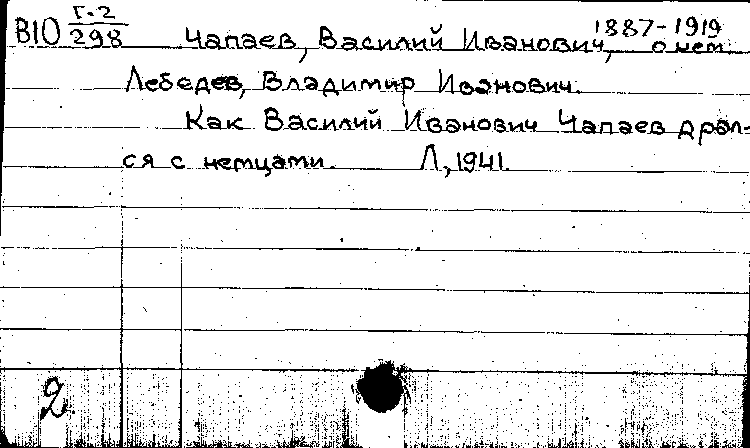 Г-2
В10 298 Чапаев, Василий Иванович, 1887-1919 о нем.
Лебедев, Владимир Иванович.
Как Василий Иванович Чапаев драл-
ся с немцами. Л., 1941.
2